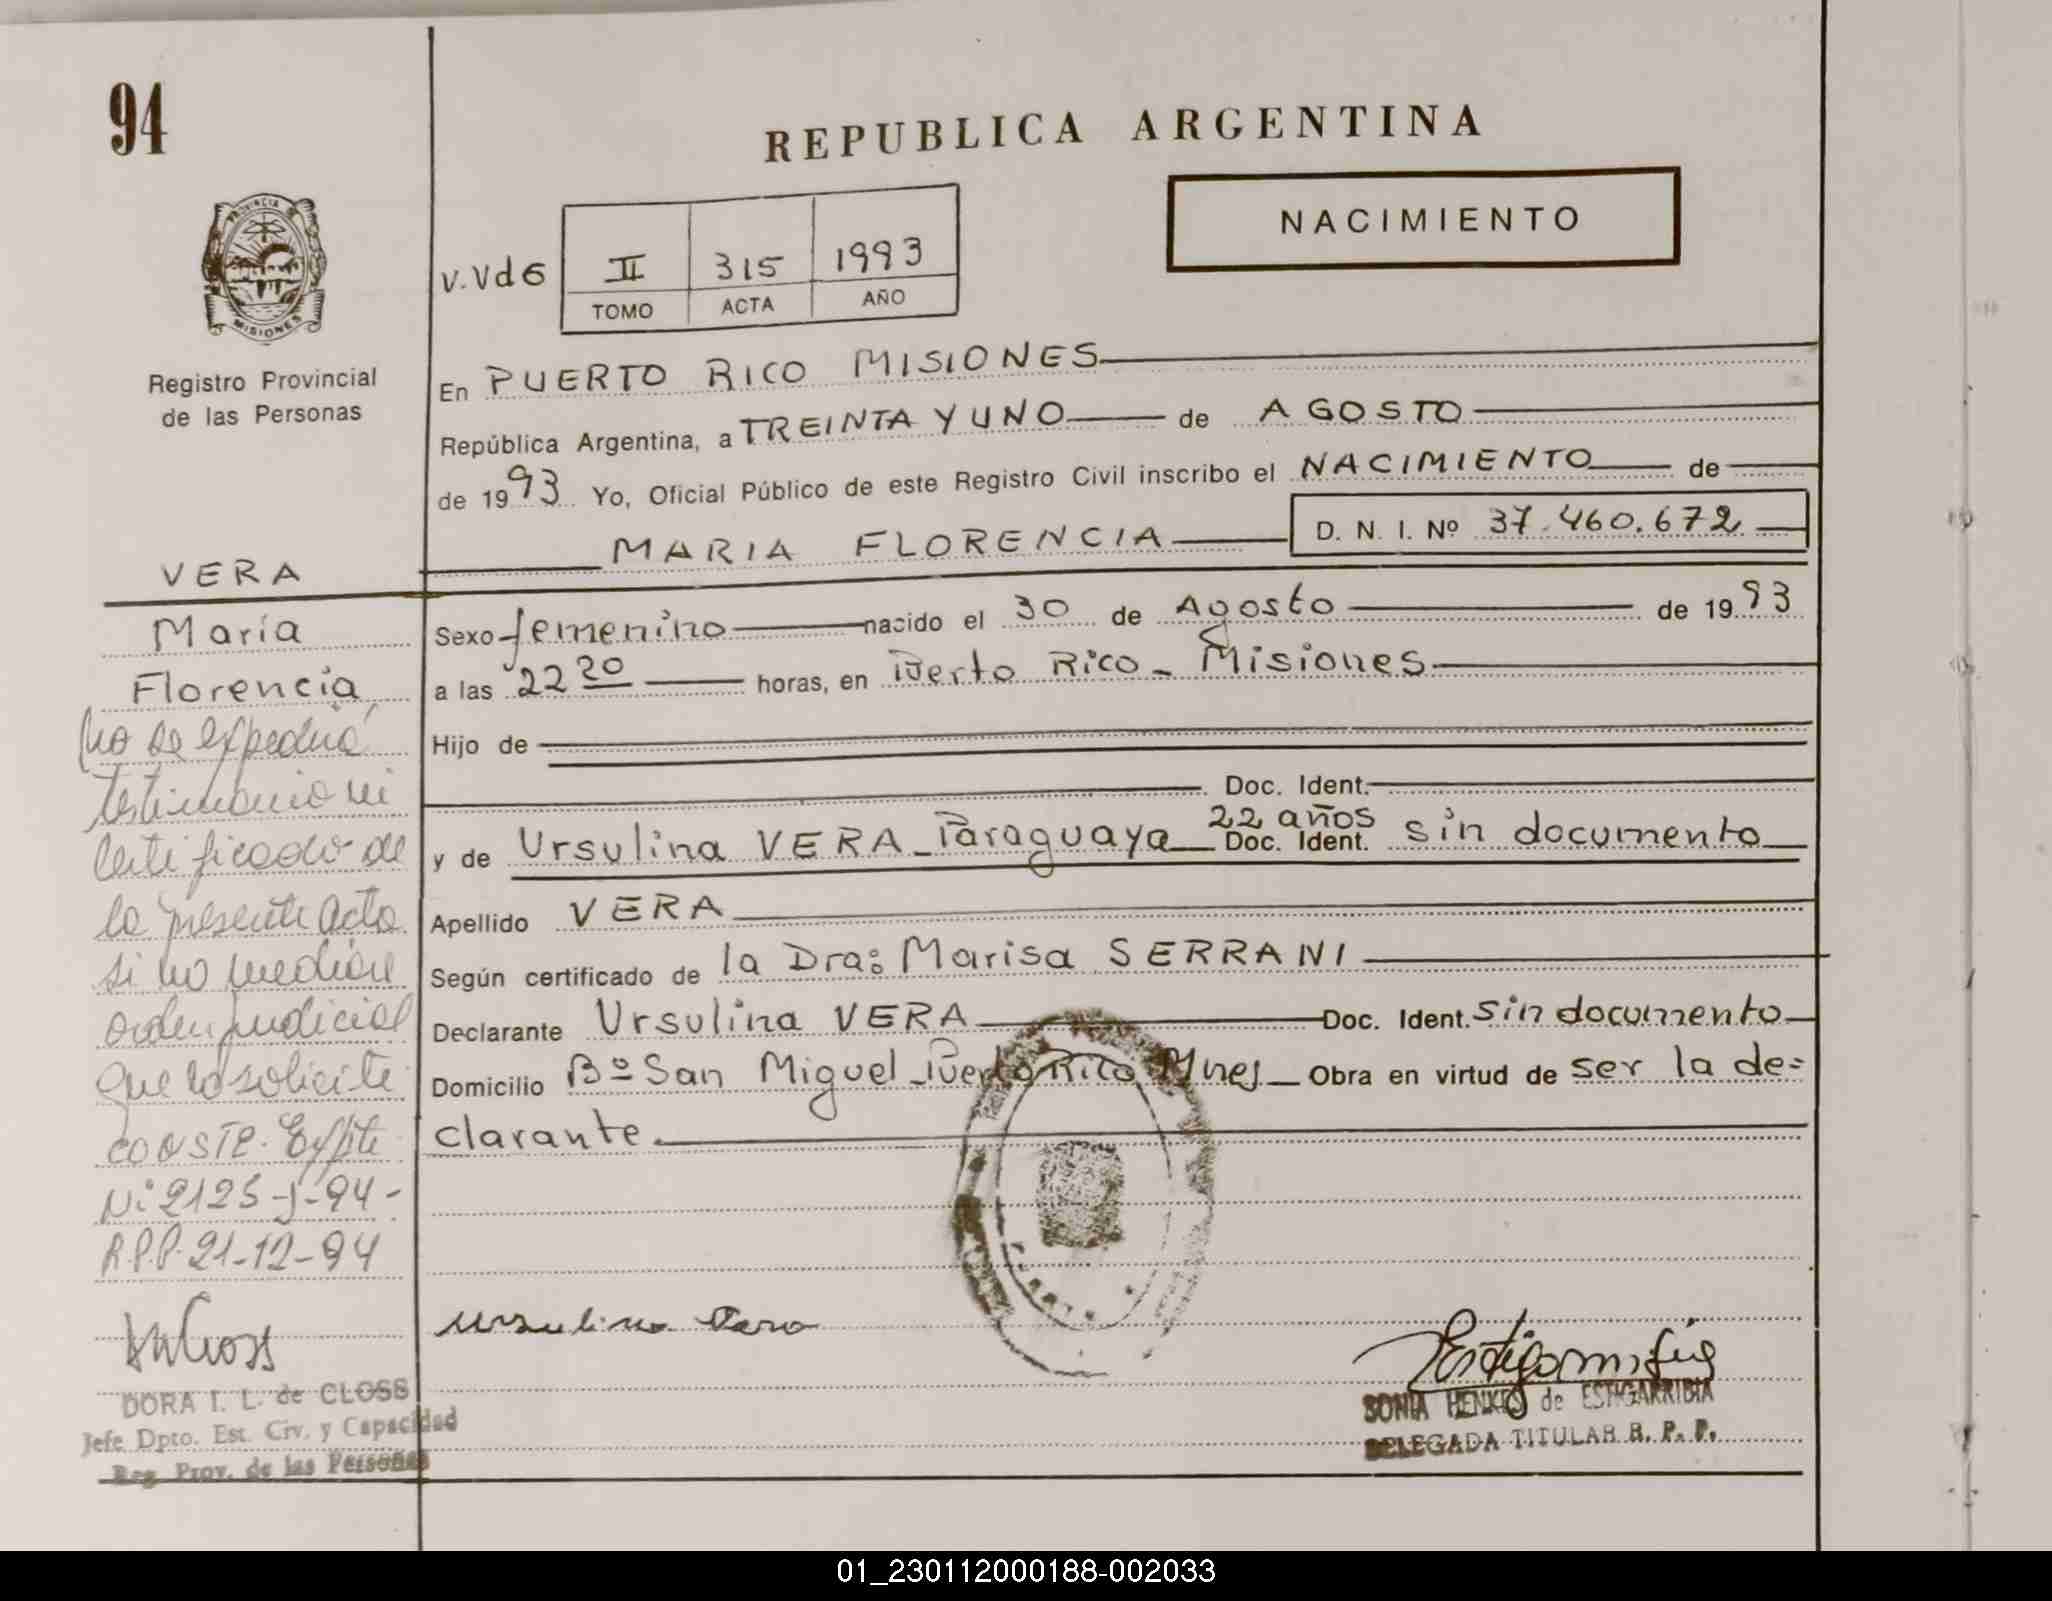 94
REPUBLICA ARGENTINA
NACIMIENTO
V.Vd6 II 315 1993
TOMO ACTA AÑO
PROVINCIA DE
MISIONES
Registro Provincial
de las Personas
En PUERTO RICO MISIONES
República Argentina, a TREINTA Y UNO de AGOSTO
de 1993 Yo, Oficial Público de este Registro Civil inscribo el NACIMIENTO de
MARIA FLORENCIA D. N. I. Nº 37.460.672
Sexo femenino nacido el 30 de Agosto de 1993
a las 22 20 horas, en Puerto Rico - Misiones
Hijo de
Doc. Ident.
22 años
y de Ursulina VERA - Paraguaya Doc. Ident. sin documento
Apellido VERA
Según certificado de la Dra: Marisa SERRANI
Declarante Ursulina VERA Doc. Ident. Sin documento
Domicilio Bº San Miguel - Puerto Rico Mnes Obra en virtud de ser la de=
clarante.
Ursulina Vera
SONIA HENKES de ESTIGARRIBIA
DELEGADA TITULAR R. P. P.
VERA
María
Florencia
No se expedirá
testimonio ni
certificado de
la presente acta
si no mediare
orden judicial
que lo solicite
CONSTE. Expte
Nº 2125-J-94-
R.P.P. 21-12-94
DORA I. L. de CLOSS
Jefe Dpto. Est. Civ. y Capacidad
Reg. Prov. de las Personas
01_230112000188-002033